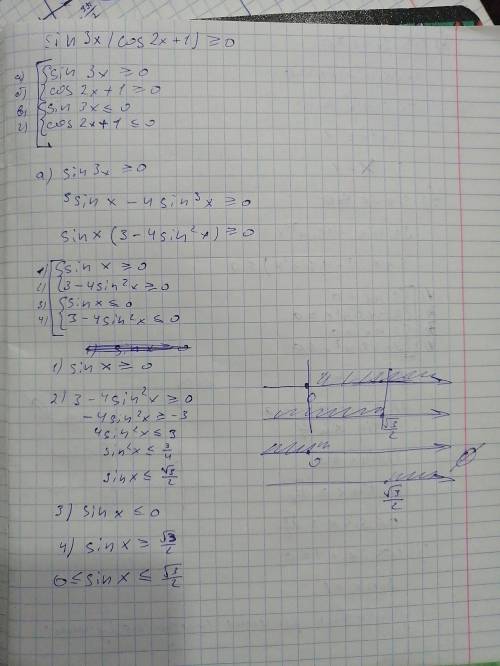 sin 3x (cos 2x + 1) ≥ 0
а) sin 3x ≥ 0
б) cos 2x + 1 ≥ 0
в) sin 3x ≤ 0
г) cos 2x + 1 ≤ 0
а) sin 3x ≥ 0
3 sin x − 4 sin³x ≥ 0
sin x (3 − 4 sin²x) ≥ 0
1) sin x ≥ 0
2) 3 − 4 sin²x ≥ 0
3) sin x ≤ 0
4) 3 − 4 sin²x ≤ 0
1) sin x ≥ 0
2) 3 − 4 sin²x ≥ 0
−4 sin²x ≥ −3
4 sin²x ≤ 3
sin²x ≤ 3/4
sin x ≤ √3/2
3) sin x ≤ 0
4) sin x ≥ √3/2
0 ≤ sin x ≤ √3/2
0
√3/2
0
∅
√3/2